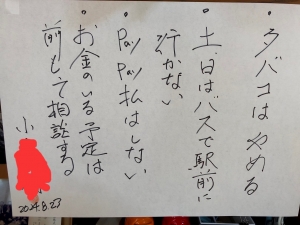 ・タバコは やめる
・土、日はバスで駅前に
行かない
・PayPay払はしない
・お金のいる予定は
前もって相談する
小
2024.8.23